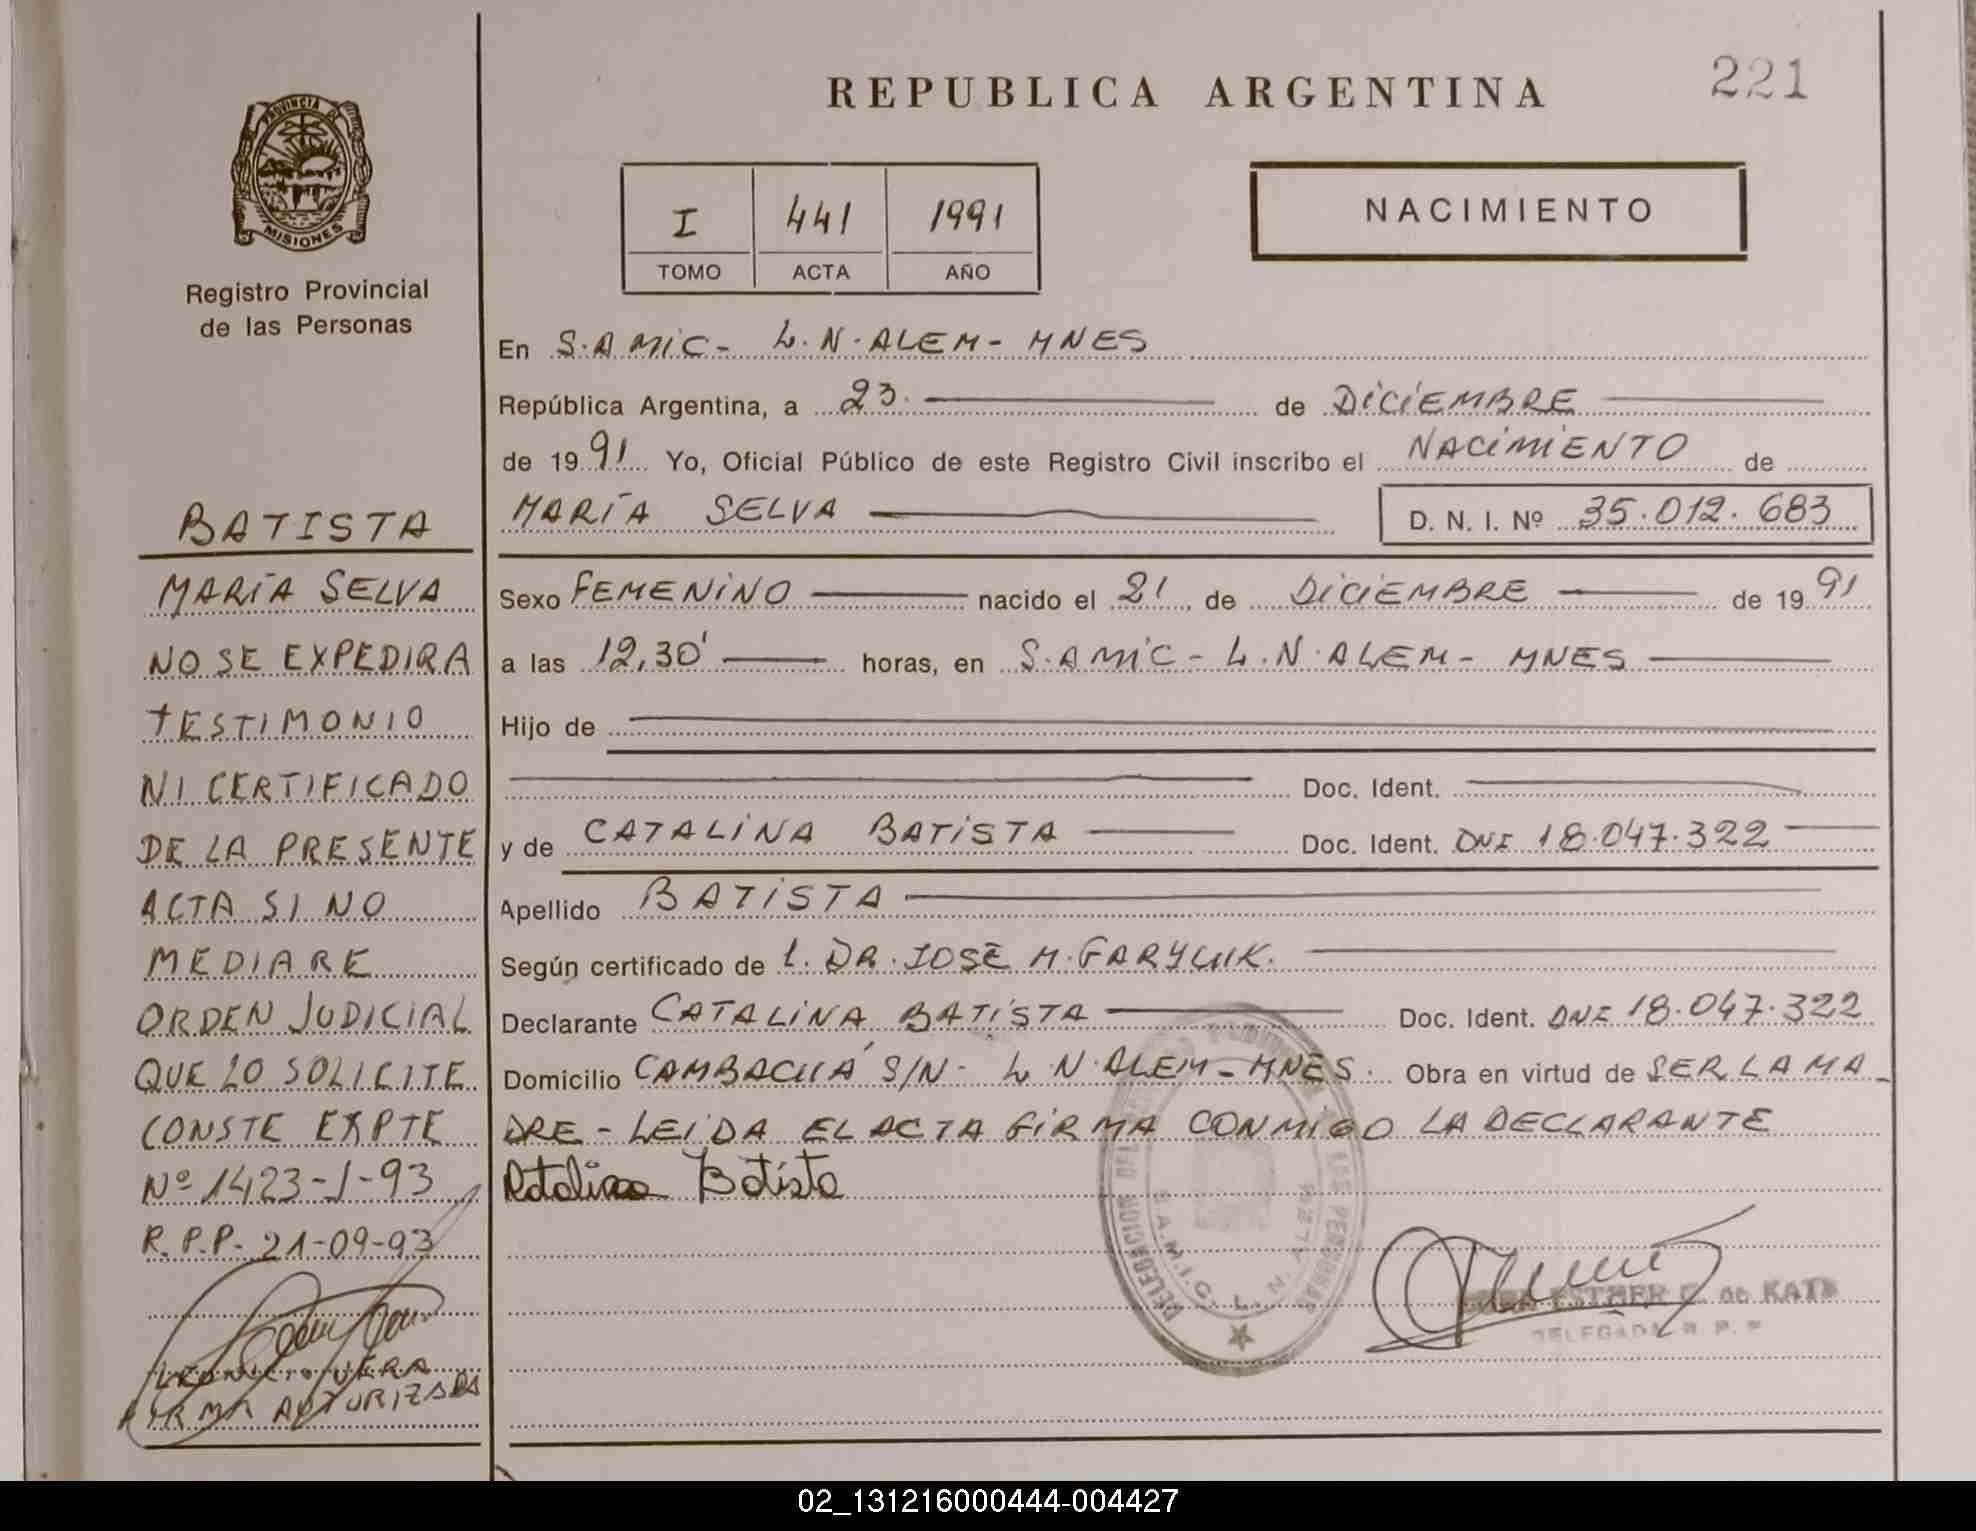 REPUBLICA ARGENTINA
221
PROVINCIA DE
MISIONES
Registro Provincial
de las Personas
I 441 1991
TOMO ACTA AÑO
NACIMIENTO
En S.A MiC- L.N.ALEM- MNES
República Argentina, a 23. de DiCiEMBRE
de 1991 Yo, Oficial Público de este Registro Civil inscribo el NACiMiENTO de
MARÍA SELVA D. N. I. Nº 35.012.683
Sexo FEMENiNO nacido el 21 de DiCiEMBRE de 1991
a las 12,30' horas, en S.A MiC - L.N.ALEM- MNES
Hijo de
Doc. Ident.
y de CATALiNA BATiSTA Doc. Ident. DNI 18.047.322
Apellido BATiSTA
Según certificado de 1. DR. JOSE M.
Declarante CATALiNA BATiSTA Doc. Ident. DNI 18.047.322
Domicilio S/N- L N.ALEM- MNES. Obra en virtud de SER LA MA-
DRE - LEiDA EL ACTA FiRMA CONMIGO LA DECLARANTE
Batista
BATISTA
MARÍA SELVA
NO SE EXPEDIRA
TESTIMONIO
NI CERTIFICADO
DE LA PRESENTE
ACTA SI NO
MEDIARE
ORDEN JUDICIAL
QUE LO SOLICITE
CONSTE EXPTE
Nº 1423-1-93
R.P.P. 21-09-93
VERA
FIRMA AUTORIZADA
DELEGACION DEL
DE LAS PERSONAS
S.A.M.I.C. L. N. ALEM
ESTHER C. de
DELEGADA R. P. P.
02_131216000444-004427